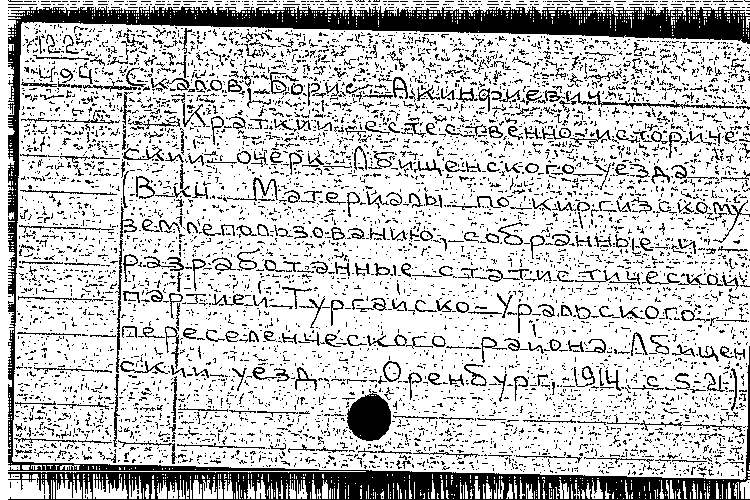 122
494 Скалов, Борис Акинфиевич
Краткий естественно-историче-
ский очерк Лбищенского уезда
(В кн. Материалы по киргизскому
землепользованию, собранные и
разработанные статистической
партией Тургайско-Уральского
переселенческого района. Лбищен
ский уезд. Оренбург, 1914 с 5-21.)